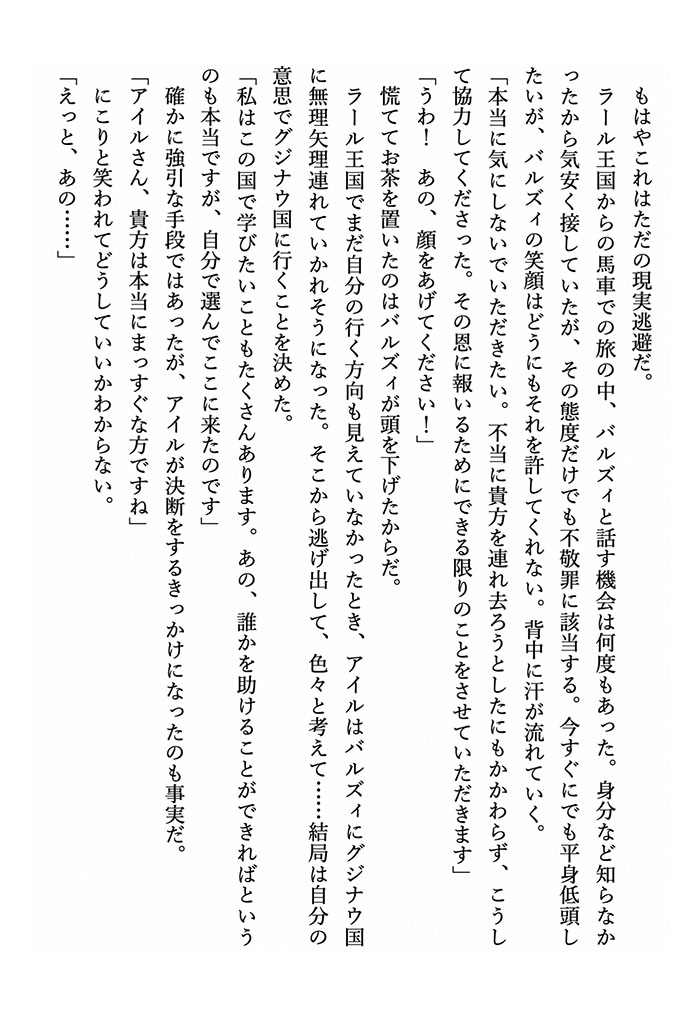 もはやこれはただの現実逃避だ。
ラール王国からの馬車での旅の中、バルズィと話す機会は何度もあった。身分など知らなか
ったから気安く接していたが、その態度だけでも不敬罪に該当する。今すぐにでも平身低頭し
たいが、バルズィの笑顔はどうにもそれを許してくれない。背中に汗が流れていく。
「本当に気にしないでいただきたい。不当に貴方を連れ去ろうとしたにもかかわらず、こうし
て協力してくださった。その恩に報いるためにできる限りのことをさせていただきます」
「うわ！　あの、顔をあげてください！」
慌ててお茶を置いたのはバルズィが頭を下げたからだ。
ラール王国でまだ自分の行く方向も見えていなかったとき、アイルはバルズィにグジナウ国
に無理矢理連れていかれそうになった。そこから逃げ出して、色々と考えて……結局は自分の
意思でグジナウ国に行くことを決めた。
「私はこの国で学びたいこともたくさんあります。あの、誰かを助けることができればという
のも本当ですが、自分で選んでここに来たのです」
確かに強引な手段ではあったが、アイルが決断をするきっかけになったのも事実だ。
「アイルさん、貴方は本当にまっすぐな方ですね」
にこりと笑われてどうしていいかわからない。
「えっと、あの……」